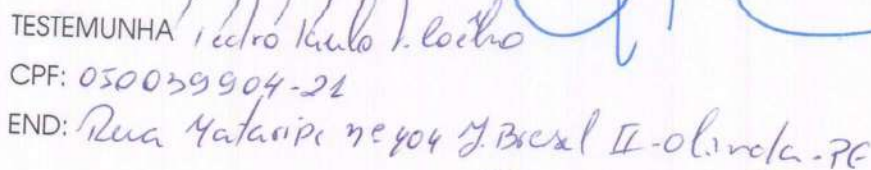 TESTEMUNHA Pedro Paulo J. Coêlho
CPF: 050039904-21
END: Rua Mataripe nº 404 J. Brasil II - Olinda - PE